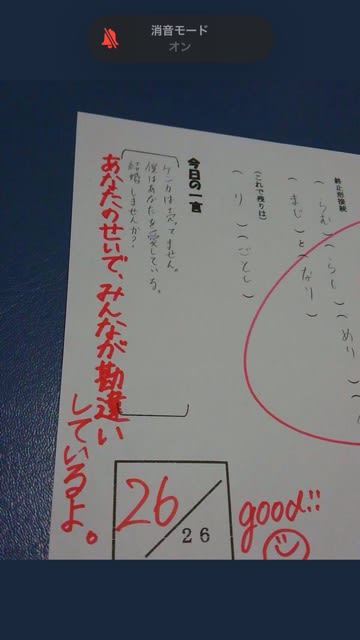 消音モード
オン
終止形接続
(らむ)(らし)(めり)(
(まじ)と(なり)
(これで残りは)
(り)(ごとし)
今日の一言
ケンカは売ってません。
僕はあなたを愛している。
結婚しませんか?
あなたのせいで、みんなが勘違い
しているよ。
26
26
good!!